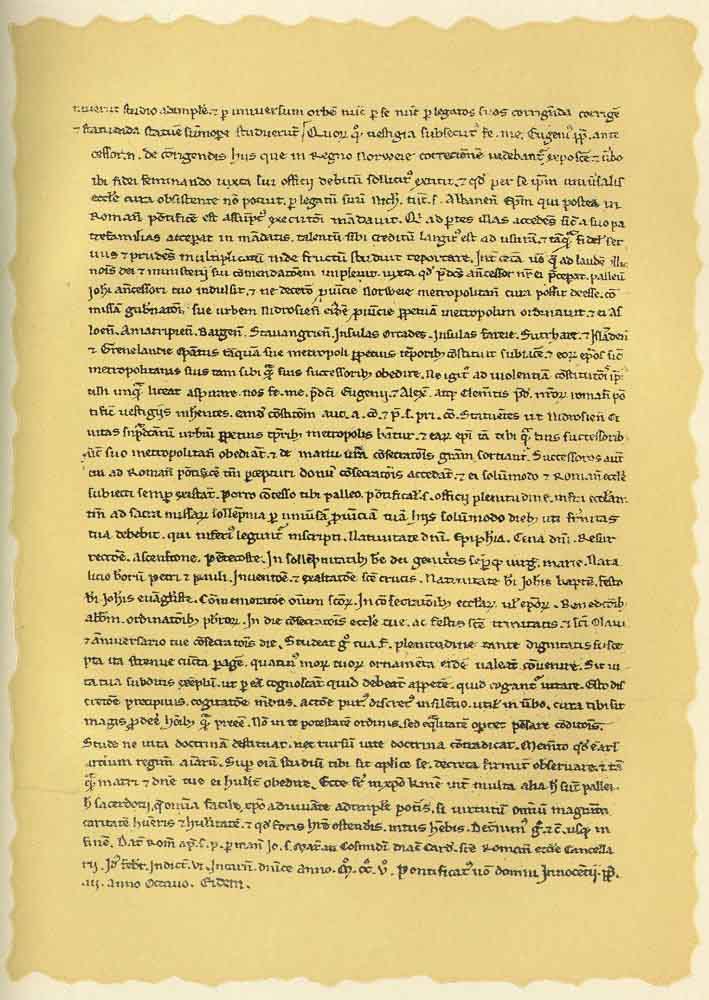 studio adimple. ⁊ p universum orbē nūc p se nūc p legatos suos corrigēda corrigē
⁊ statuenda statue sūmope studuerūt Quor q̃ vestigia subsecut fe. me. Eugeni' pp. ante
cessor. n. de corrigendis hiis que in Regno Norweie correctionē videbant
ibi fidei seminando iuxta sui officii debitū sollicit' extitit. ⁊ qd per se ipm univsalis
ecclie cura obsistente nō potuit. p legatū suū Nich. tūc. s. Albanen Epm qui postea in
Romañ pōtifice est assūpt' exeᵭtōi mādavit. Qi ad ptes illas accedēs sic a suo pa
trefamilias accepat in mādatis. talentū sibi creditū largit' est ad usurā. ⁊ tāq fidel' ser
vus ⁊ prudēs multiplicatū inde fructū studuit reportare. Int cetā vo q ad laudē
nois dei ⁊ ministerii sui comendatoem implevit. iuxta qd pdcs ancessor nr ei pcepat. palleū
Johi ancessori tuo indulsit. ⁊ ne decero pvicie Norweie metropolitañ cura possit deesse. cō
missā gubnatōi. sue urbem Nidrosieñ eidē pvicie ppetuā metropolim ordinavit. ⁊ ei As
loeñ. Amatripieñ. Bargeñ. Stauangrieñ. Insulas Orcades. Insulas fareie. Sutrhaie. ⁊ Islāden
⁊ Grenelandie Epatus tāquā sue metropoli ppetuis tēporib cōstituit subiace. ⁊ eor epos sic
metropolitanis suis tam sibi q suis successorib obedire. Ne igit' ad violentiā cōstitutōi ip'
usi unq liceat aspirare. nos fe. me. pdci Eugenii. ⁊ Alex. atq Clemētis pd. nror romañ pō
tificū vestigiis inhentes. eand cōstitom auc. a. cō. ⁊ p. s. pri. cō. Statuētes ut Nidrosieñ Ci
vitas supdictarū urbiū ppetuis tprib metropolis habeat'. ⁊ earū epi tā tibi q tuis successorib
sic suo metropolitañ obediāt. ⁊ de manu vra cōsecratōis gram sortiant. Successores aut
tui ad Romañ pōtificē tm pcepturi donū cōsecratōis accedāt. ⁊ ei solūmodo ⁊ Romañ eccle
subiecti semp existāt. Porro cōcesso tibi palleo. pōtifical. s. officii plenitudine. infra ecclar.
tm ad sacra missar sollempnia p univsā pvinciā tuā hiis solūmodo dieb uti frnitas
tua debebit. qui inferi' legunt inscripti. Nativitate dni. Epiphia. Cena dni. Resur
rectōe. Ascensione. Pentecoste. In sollepnitatib be dei genitcis sepq virg. marie. Nata
licio borū petri ⁊ pauli. Inventoe. ⁊ exaltatōe sce crucis. Nativitate bi Johis bapte. festo
bi Johis evāgliste. Cōmemoratōe oium scor. In cōsecratiōib ecclar. ul' epor. Benedictiōib
abbm. ordinatōib pbror. In die cōsecratōis eccle tue. ac festis sce trinitatis. ⁊ sci Olavi
⁊ āniversario tue cōsecratōis die. Studeat g' tua f. plenitudine tante dignitatis susce
pta ita strenue cūcta page. quatin' mor tuor ornameta eidē valeāt cōvenire. Sit vi
ta tua subditis exepl'. ut p eā cognoscāt quid debeāt appete. quid cogant' vitare. Esto dis
cretōe precipuus. cogitatōe mūdus. actōe pur'. discret' in silētio. util' in vbo. cura tibi sit
magis pdee hōib q pree. Nō in te potestate ordinis. sed eqlitate oportet pēsare cōditois.
Stude ne vita doctrinā destituat. nec rursū vite doctrina cōtradicat. Memēto qd e ars
artium regim aiarū. Sup oia studiū tibi sit aplice se. decreta firmit observare. ⁊ tā
q matri ⁊ dne tue ei hulit obedire. Ecce fr i xpo kme int multa alia h sūt pallei.
h sacerdotii. q omia facile. xpo adiuvāte adimple poteris. si virtutū oiniū magistrā
caritatē hueris ⁊ hūilitatē. ⁊ qd foris hre ostendis. intus hebis. usq in
finē. Dat Rom ap. s. p. p man Jo. s. Mar in Cosmidi diac Card. sce Romañ eccle Cancella
rii. Id' febr. Indict. vi. Incarn. dnice anno. M. CC. V. Pontificat' vo domini Innocētii. pp.
.iii. anno Octavo. Eidem.